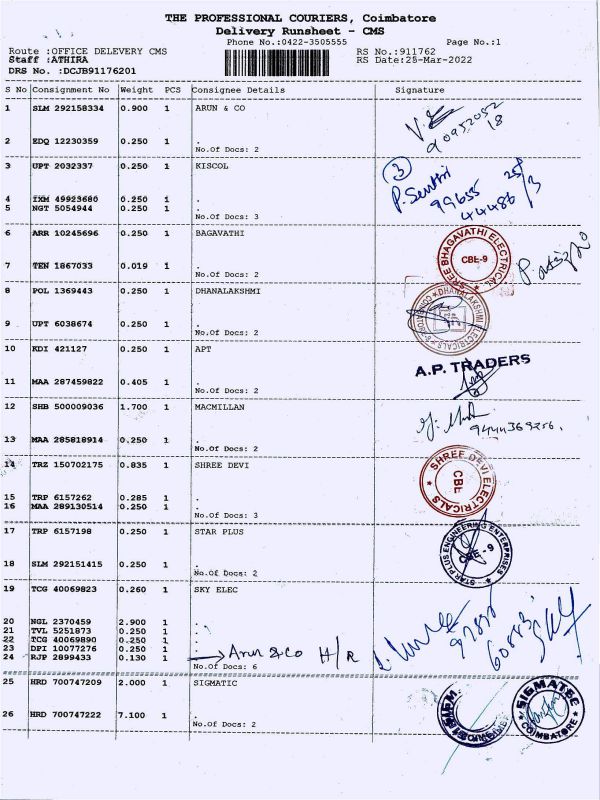 THE PROFESSIONAL COURIERS, Coimbatore
Delivery Runsheet - CMS
Phone No.:0422-3505555 Page No.:1
Route :OFFICE DELEVERY CMS RS No.:911762
Staff :ATHIRA RS Date:25-Mar-2022
DRS No. :DCJB91176201
S No Consignment No Weight PCS Consignee Details Signature
1 SLM 292158334 0.900 1 ARUN & CO
2 EDQ 12230359 0.250 1 .
No.Of Docs: 2
3 UPT 2032337 0.250 1 KISCOL
3
P. Senthil 25/3
99655
44486
4 IXM 49923680 0.250 1 .
5 NGT 5054944 0.250 1 .
No.Of Docs: 3
6 ARR 10245696 0.250 1 BAGAVATHI
SHREE BHAGAVATHI ELECTRICAL CBE-9
7 TEN 1867033 0.019 1 .
No.Of Docs: 2
8 POL 1369443 0.250 1 DHANALAKSHMI
DHANALAKSHMI ELECTRICALS
9 UPT 6038674 0.250 1 .
No.Of Docs: 2
10 KDI 421127 0.250 1 APT
A.P. TRADERS
11 MAA 287459822 0.405 1 .
No.Of Docs: 2
12 SHB 500009036 1.700 1 MACMILLAN
9444369256.
13 MAA 285818914 0.250 1 .
No.Of Docs: 2
14 TRZ 150702175 0.835 1 SHREE DEVI
SHREE DEVI ELECTRICALS CBE
15 TRP 6157262 0.285 1 .
16 MAA 289130514 0.250 1 .
No.Of Docs: 3
17 TRP 6157198 0.250 1 STAR PLUS
STAR PLUS ENGINEERING ENTERPRISES CBE - 9
18 SLM 292151415 0.250 1 .
No.Of Docs: 2
19 TCG 40069823 0.260 1 SKY ELEC
20 NGL 2370459 2.900 1 .
21 TVL 5251873 0.250 1 .
22 TCG 40069890 0.250 1 .
23 DPI 10077276 0.250 1 .
24 RJP 2899433 0.130 1 . Arun & Co H/R
No.Of Docs: 6
25 HRD 700747209 2.000 1 SIGMATIC
SIGMATEC COIMBATORE
26 HRD 700747222 7.100 1 .
No.Of Docs: 2